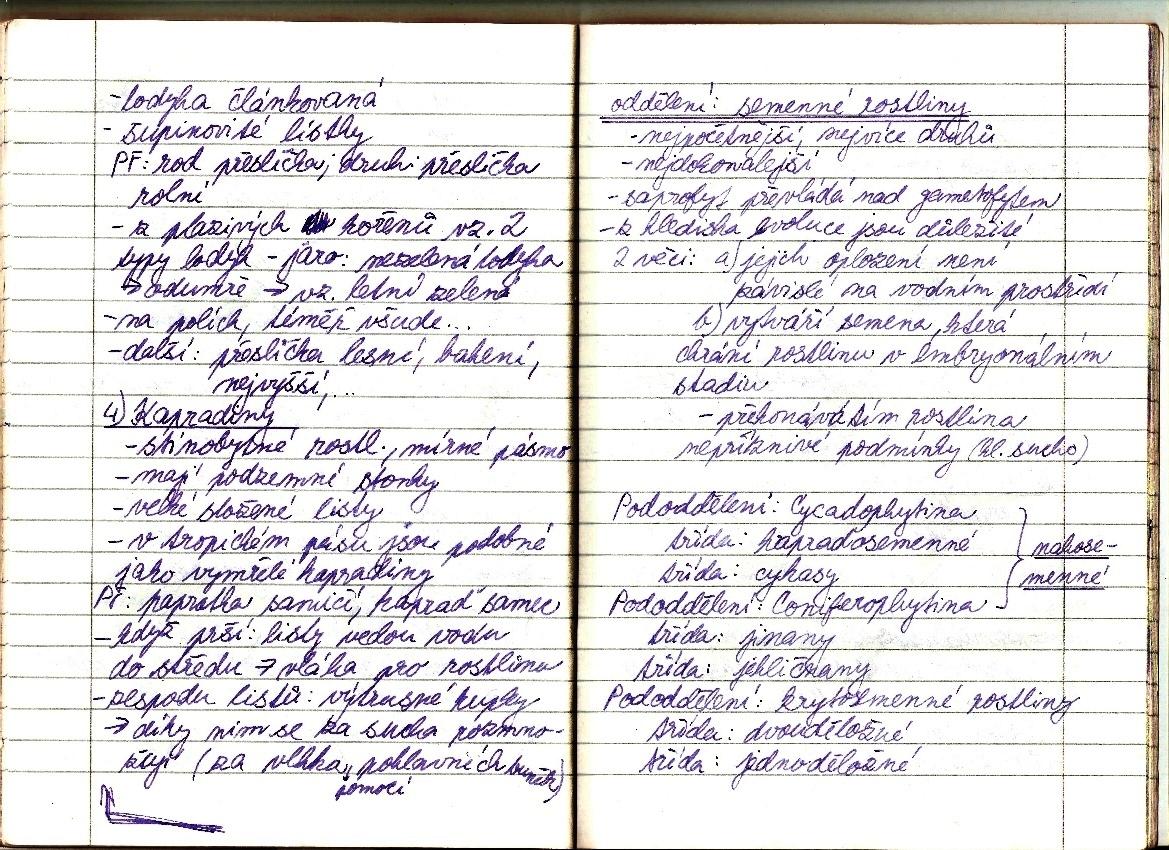 -lodyha článkovaná
- šupinovité lístky
PŘ: rod přeslička; druh: přeslička
rolní
- z plazivých kořenů vz. 2
typy lodyh - jaro: nezelená lodyha
→ odumře → vz. letní zelená
-na polích, téměř všude...
-další: přeslička lesní, bahení,
nejvyšší,...
4) Kapradiny
-stínobytné rostl., mírné pásmo
- mají podzemné stonky
-velké složené listy
- v tropickém pásu jsou podobné
jako vymřelé kapradiny
Př: papratka samičí, kapraď samec
- když prší: listy vedou vodu
do středu → vláha pro rostlinu
-zespodu listů: výtrusné kupky
→ díky nim se za sucha rozmno-
žují (za vlhka, pohlavních buněk)
pomocí
oddělení: semenné rostliny
-nejpočetnější, nejvíce druhů
-nejdokonalejší
-saprofyt převládá nad gametofytem
-z hlediska evoluce jsou důležité
2 věci: a) jejich oplození není
závislé na vodním prostředí
b) vytváří semena, která
chrání rostlinu v embryonálním
stadiu
- překonává tím rostlina
nepříznivé podmínky (hl. sucho)
Pododdělení: Cycadophytina
třída: kapradosemenné
třída: cykasy
Pododdělení: Coniferophytina
nahose-
menné
třída: jinany
třída: jehličnany
Pododdělení: krytosemenné rostliny
třída: dvouděložné
třída: jednoděložné